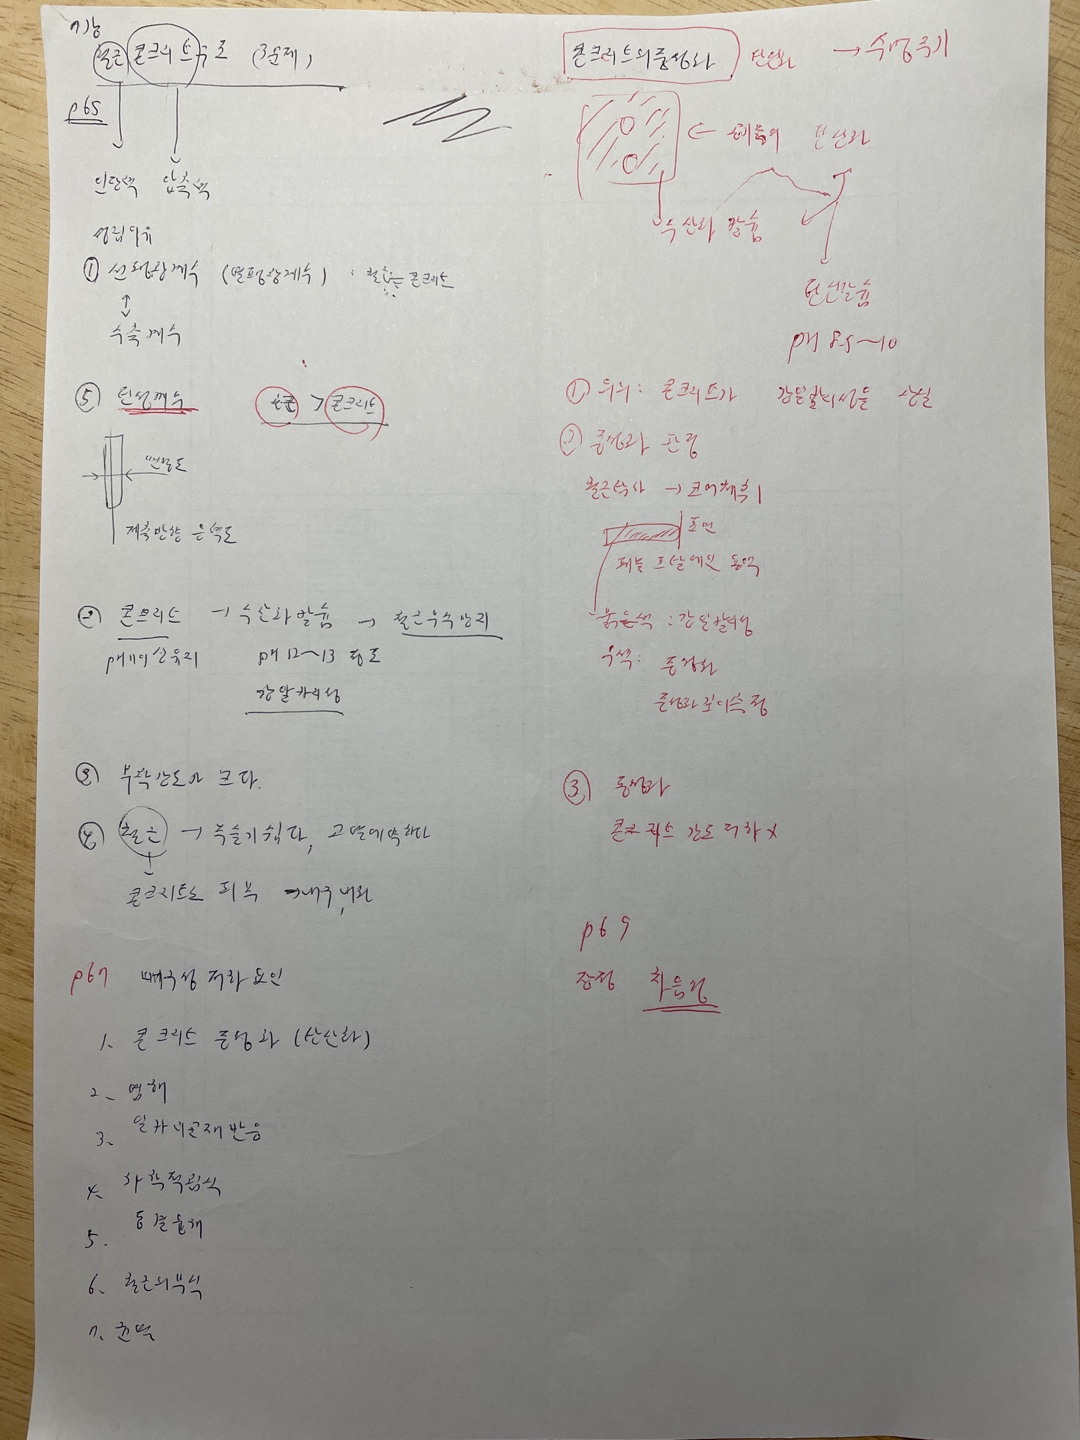 철근 콘크리트구조 (3문제)
p65
인장력 압축력
성립이유
① 선팽창계수 (열팽창계수) : 철근≒콘크리트
수축계수
⑤ 탄성계수 철근 > 콘크리트
변형도
재축방향 응력도
② 콘크리트 → 수산화칼슘 → 철근부식방지
pH11이상유지 pH 12~13 정도
강알카리성
③ 부착강도가 크다.
④ 철근 → 녹슬기쉽다, 고열에약하다
콘크리트로 피복 → 내구,내화
p67 내구성 저하요인
1. 콘크리트 중성화 (탄산화)
2. 염해
3. 알카리골재반응
4. 화학적침식
5. 동결융해
6. 철근의부식
7. 균열
콘크리트의중성화 탄산화 → 수명주기
← 대기중의 탄산화
수산화 칼슘
탄산칼슘
pH 8.5~10
① 정의: 콘크리트가 강알칼리성을 상실
② 중성화 판정
→ 코어채취
표면
페놀프탈레인 용액
붉은색 : 강알칼리성
무색: 중성화
중성화깊이측정
③ 중성화
콘크리트 강도저하 x
p69